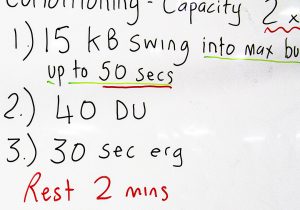 Conditioning - Capacity 2 x
1.) 15 KB Swing into max bu
up to 50 secs
2.) 40 DU
3.) 30 sec erg
Rest 2 mins